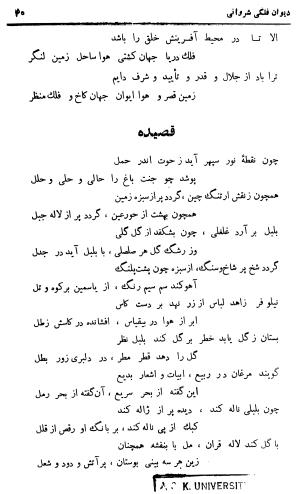 دیوان فلکی شروانی
۴۰
الا تا در محیط آفرینش خلق را باشد
فلک دریا جهان کشتی هوا ساحل زمین لنگر
ترا باد از جلال و قدر و تأیید و شرف دایم
زمین قصر و هوا ایوان جهان کاخ و فلک منظر
قصیده
چون نقطهٔ نور سپهر آید ز حوت اندر حمل
پوشد چو جنت باغ را حالی و حلی و حلل
همچون ز نقش ارتنگ چین ، گردد پر از سبزه زمین
همچون بهشت از حورعین ، گردد پر از لاله جبل
بلبل بر آرد غلغلی ، چون بشکفد از گل گلی
وز رشگ گل هر صلصلی ، با بلبل آید در جدل
گردد شخ پر شاخ و سنگ ، از سبزه چون پشت پلنگ
آهو کند سم سیم رنگ ، از یاسمین بر کوه و تل
نیلوفر زاهد لباس از زر نهد بر دست کاس
ابر از هوا در بیقیاس ، افشانده در کاسش زطل
بستان ز گل یابد خطر بر گل کند بلبل نظر
گل را دهد قطر مطر ، در دلبری زور بطل
گویند مرغان در ربیع ، ابیات و اشعار بدیع
این گفته از بحر سریع ، آن گفته از بحر رمل
چون بلبلی ناله کند ، دیده پر از ژاله کند
کبک از پی ناله کند ، بر بانگ او رقص از قلل
با گل کند لاله قران ، مل با بنفشه همچنان
زین هر سه بینی بوستان ، پر آتش و دود و شعل
K. UNIVERSIT